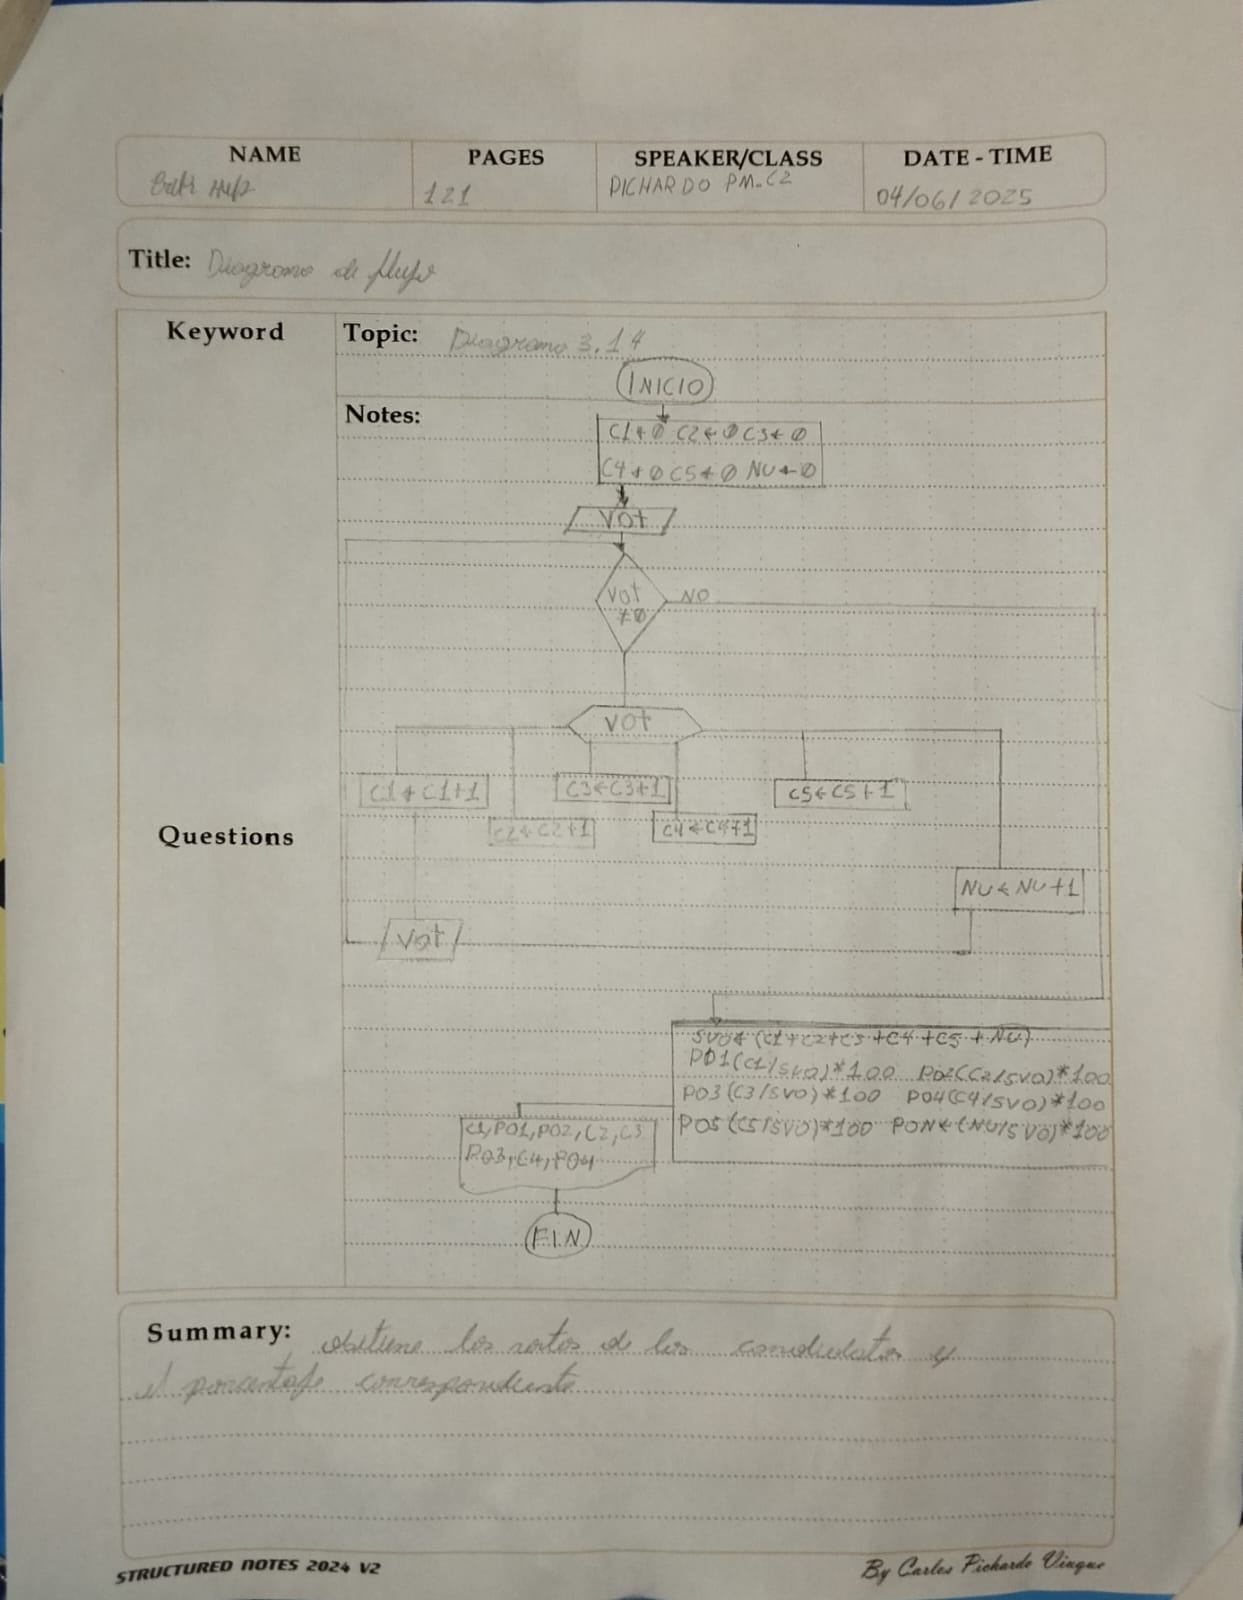 NAME PAGES SPEAKER/CLASS DATE - TIME
121 PICHARDO PM-C2 04/06/2025
Title: Diagrama de flujo
Keyword Topic: Diagrama 3.14
INICIO
Notes:
C1←0 C2←0 C3←0
C4←0 C5←0 NU←0
Vot
Vot NO
≠0
Vot
C1←C1+1 C3←C3+1 C5←C5+1
Questions C2←C2+1 C4←C4+1
NU←NU+1
Vot
SVO←(C1+C2+C3+C4+C5+NU)
PO1(C1/SVO)*100 PO2(C2/SVO)*100
PO3(C3/SVO)*100 PO4(C4/SVO)*100
PO5(C5/SVO)*100 PON←(NU/SVO)*100
C1,PO1,PO2,C2,C3
PO3,C4,PO4
FIN
Summary: obtiene los votos de los candidatos y
el porcentaje correspondiente
STRUCTURED NOTES 2024 V2 By Carlos Pichardo Viuque